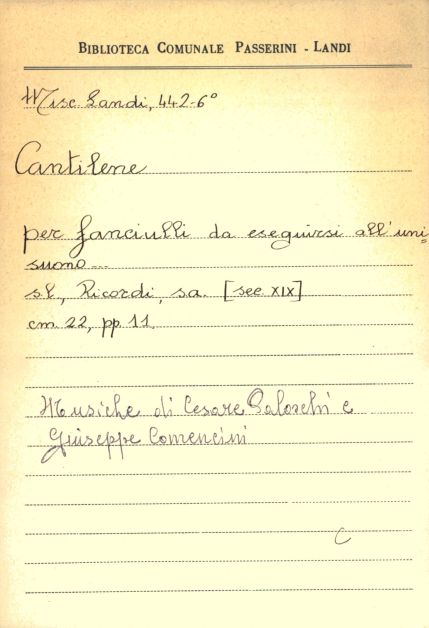 BIBLIOTECA COMUNALE PASSERINI - LANDI
Misc. Landi, 442-6°
Cantilene
per fanciulli da eseguirsi all'uni=
suono...
s.l., Ricordi, s.a. [sec. XIX]
cm. 22, pp. 11.
Musiche di Cesare e
Giuseppe Comencini
C